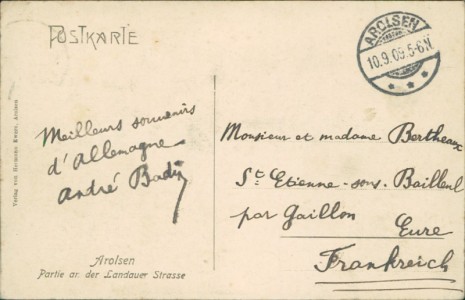 POSTKARTE
AROLSEN
10.9.09.5-6.N
Meilleurs souvenirs
d'Allemagne
André Badin
Monsieur et madame Bertheaux
St Etienne-sous-Bailleul
par Gaillon
Eure
Frankreich
Arolsen
Partie an der Landauer Strasse
Verlag von Hermann Ewers, Arolsen